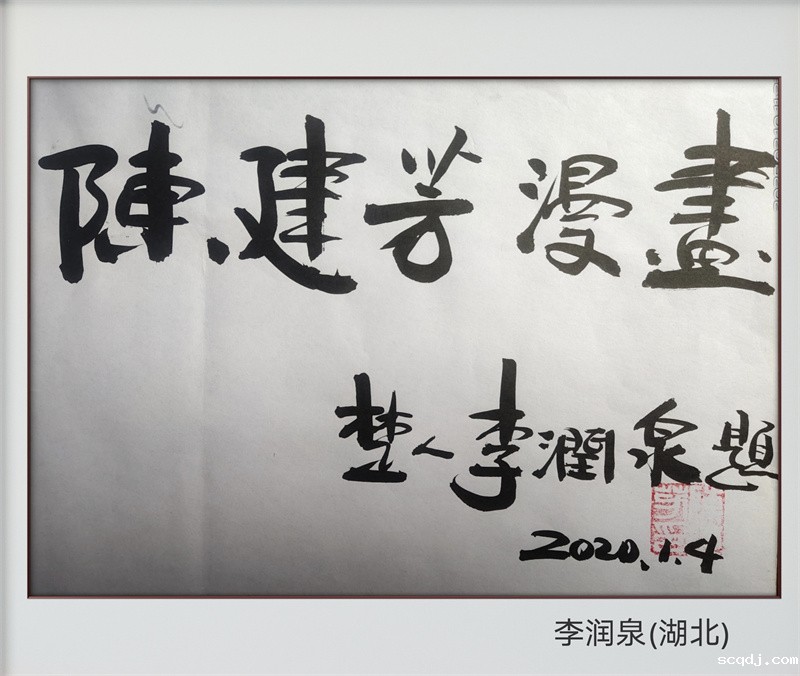 陳建芳漫畫
楚人李潤泉題
2020.1.4
李润泉(湖北)
scqdj.com